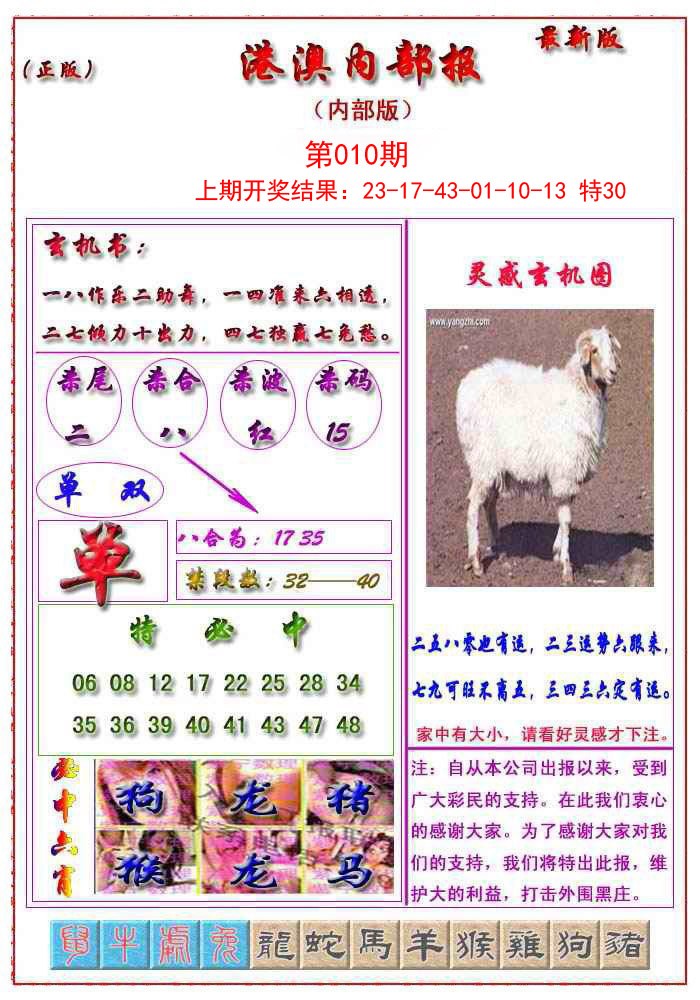 港澳内部报
最新版
（正版）
（内部版）
第010期
上期开奖结果：23-17-43-01-10-13 特30
玄机书：
一八作乐二助舞，一四准来六相透，
二七倾力十出力，四七独赢七免愁。
杀尾 杀合 杀波 杀码
二 八 红 15
单 双
单
八合为：17 35
禁段数：32——40
特 必 中
06 08 12 17 22 25 28 34
35 36 39 40 41 43 47 48
必中六肖
狗 龙 猪
猴 龙 马
灵感玄机图
www.yangzhi.com
二五八零也有运，二三运势六跟来，
七九可旺不离五，三四三六定有运。
家中有大小，请看好灵感才下注。
注：自从本公司出报以来，受到
广大彩民的支持。在此我们衷心
的感谢大家。为了感谢大家对我
们的支持，我们将特出此报，维
护大的利益，打击外围黑庄。
鼠 牛 虎 兔 龍 蛇 馬 羊 猴 雞 狗 豬